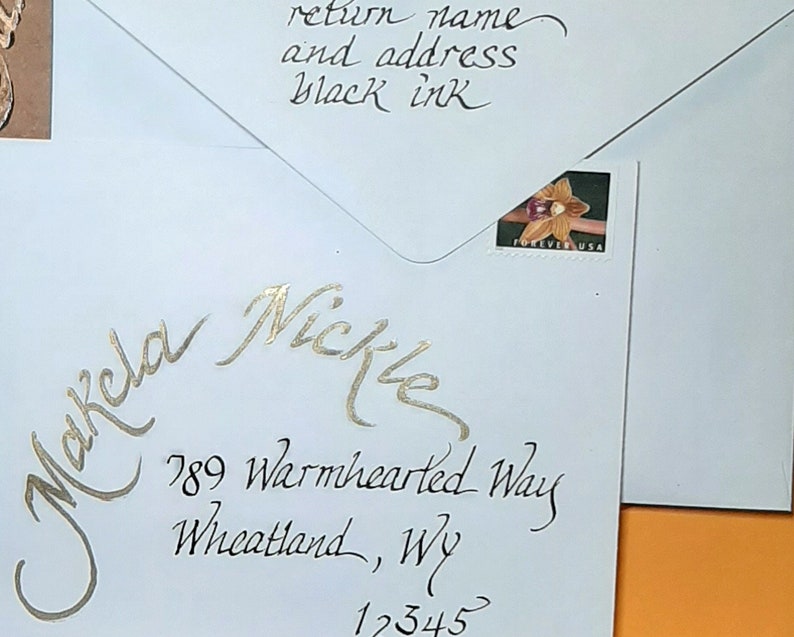 return name
and address
black ink
FOREVER USA
Makela Nickle
789 Warmhearted Way
Wheatland, Wy
12345